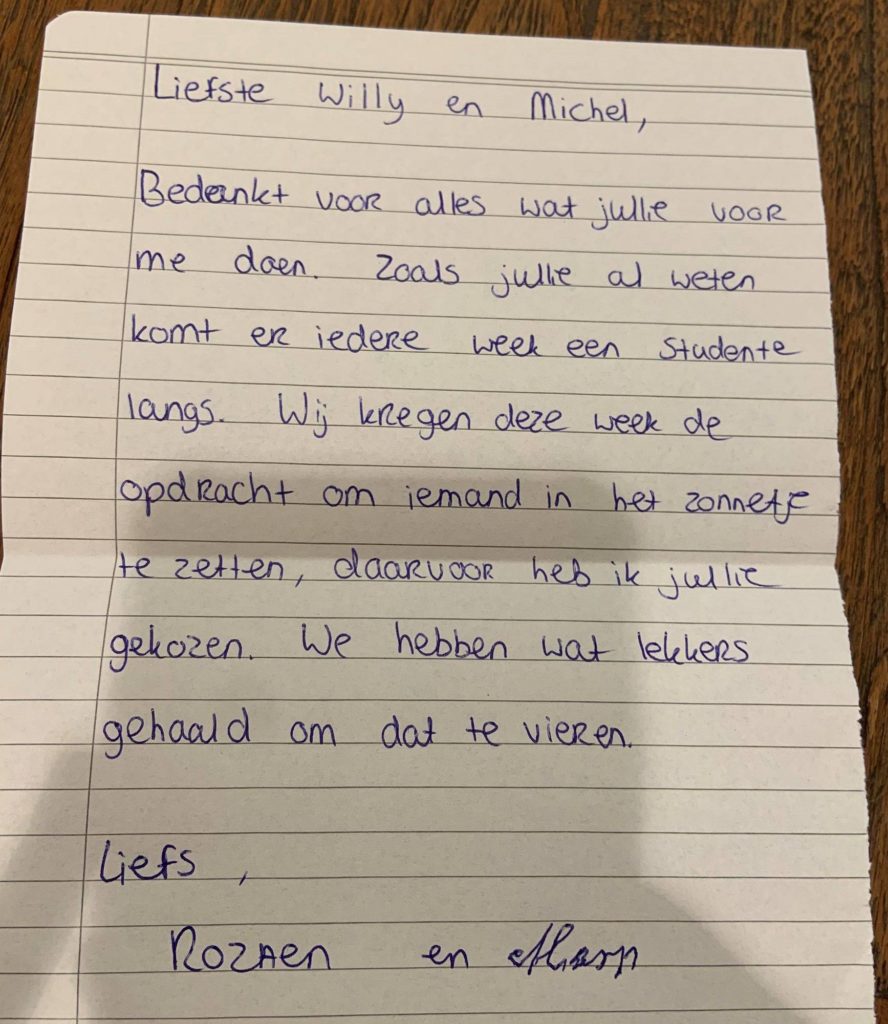 Liefste Willy en Michel,
Bedankt voor alles wat jullie voor
me doen. Zoals jullie al weten
komt er iedere week een studente
langs. Wij kregen deze week de
opdracht om iemand in het zonnetje
te zetten, daarvoor heb ik jullie
gekozen. We hebben wat lekkers
gehaald om dat te vieren.
Liefs,
en